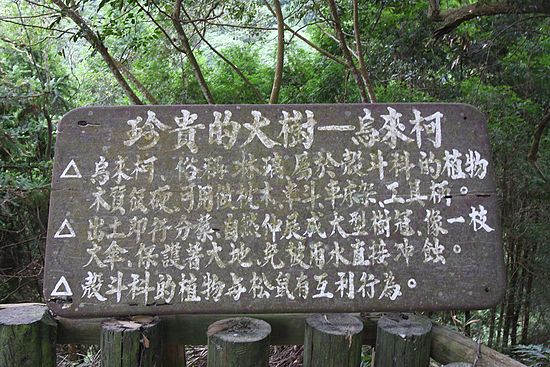 珍貴的大樹—烏來柯
△ 烏來柯、俗稱林漓屬於殼斗科的植物
木質後梗,可用做枕木,車斗車床架、工具柄。
△ 出土即行分蘗,自然伸展成大型樹冠,像一枝
大傘,保護著大地,免被雨水直接沖蝕。
△ 殼斗科的植物與松鼠有互利行為。